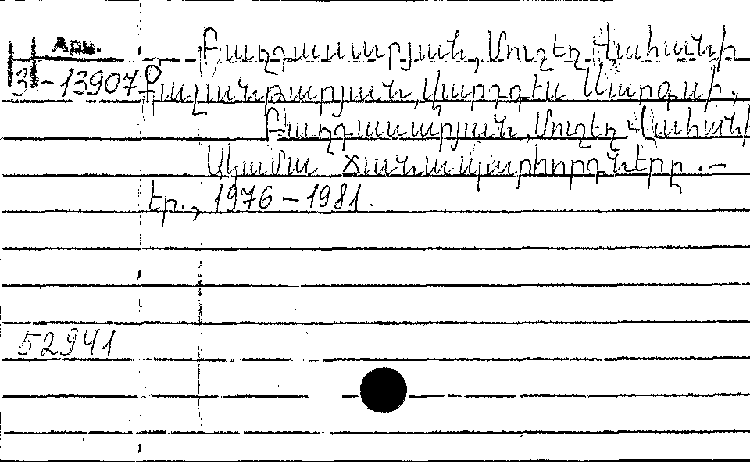 Արս.
3-13907
Բաղդասարյան, Մուշեղ Վահանի
Քալանթարյան, Սարգսի,
Բաղդասարյան, Մուշեղ Վահանի
Ակամա ճանապարհորդները.–
Եր., 1976–1981.
52941